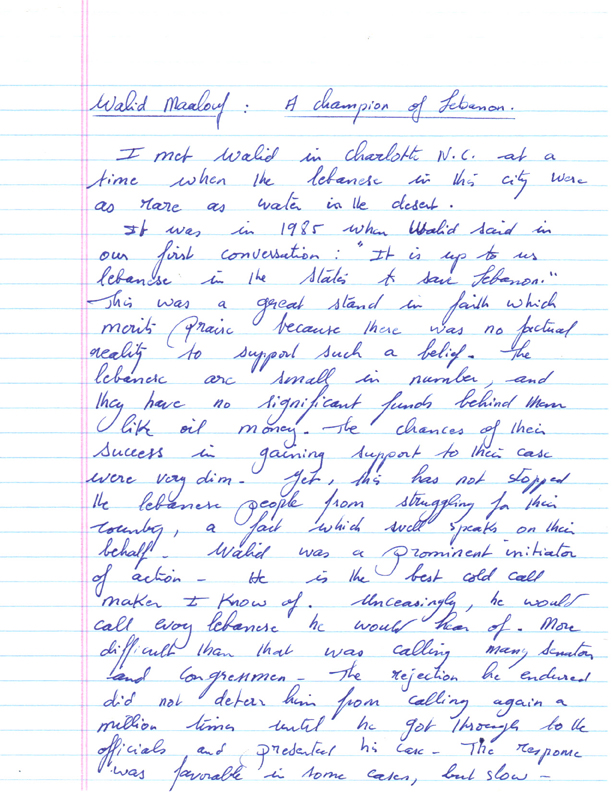 Walid Maalouf : A champion of Lebanon.
I met Walid in Charlotte N.C. at a
time when the lebanese in this city were
as rare as water in the desert.
It was in 1985 when Walid said in
our first conversation : "It is up to us
lebanese in the States to save Lebanon."
This was a great stand in faith which
merits praise because there was no factual
reality to support such a belief. The
lebanese are small in number, and
they have no significant funds behind them
like oil money. The chances of their
success in gaining support to their case
were very dim. Yet, this has not stopped
the lebanese people from struggling for their
country, a fact which well speaks on their
behalf. Walid was a prominent initiator
of action - He is the best cold call
maker I know of. Unceasingly, he would
call every lebanese he would hear of. More
difficult than that was calling many Senators
and Congressmen - The rejection he endured
did not deterr him from calling again a
million times until he got through to the
officials and presented his case - The response
was favorable in some cases, but slow -